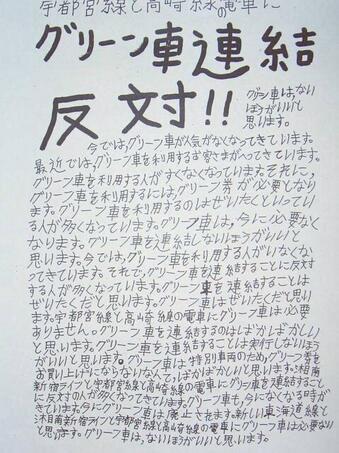 宇都宮線と高崎線の電車に
グリーン車連結
反対!!
グリーン車は、ない
ほうがいいと
思います。
今では、グリーン車が人気がなくなってきています。
最近では、グリーン車を利用するお客さまがへってきています。
グリーン車を利用する人がすくなくなっています。それに、
グリーン車を利用するには、グリーン券が必要となり
ます。グリーン車を利用するのはぜいたくといってい
る人が多くなっています。グリーン車は、今に必要なく
なります。グリーン車を連結しないほうがいいと
思います。今では、グリーン車を利用する人がいなくな
ってきています。それで、グリーン車を連結することに反対
する人が多くなっています。グリーン車を連結することは
ぜいたくだと思います。グリーン車はぜいたくだと思い
ます。宇都宮線と高崎線の電車にグリーン車は必要
ありません。グリーン車を連結するのはばかばかしい
と思います。グリーン車を連結することは実行しないほう
がいいと思います。グリーン車は特別車両のため、グリーン券を
お買い上げにならないなんて、ばかばかしいと思います。湘南
新宿ラインと宇都宮線と高崎線の電車にグリーン車を連結すること
に反対の人が多くなってきています。グリーン車も、今になくなる時が
きています。今にグリーン車は廃止されます。新しい東海道線と
湘南新宿ラインと宇都宮線と高崎線の電車にグリーン車は必要ない
と思います。グリーン車は、ないほうがいいと思います。